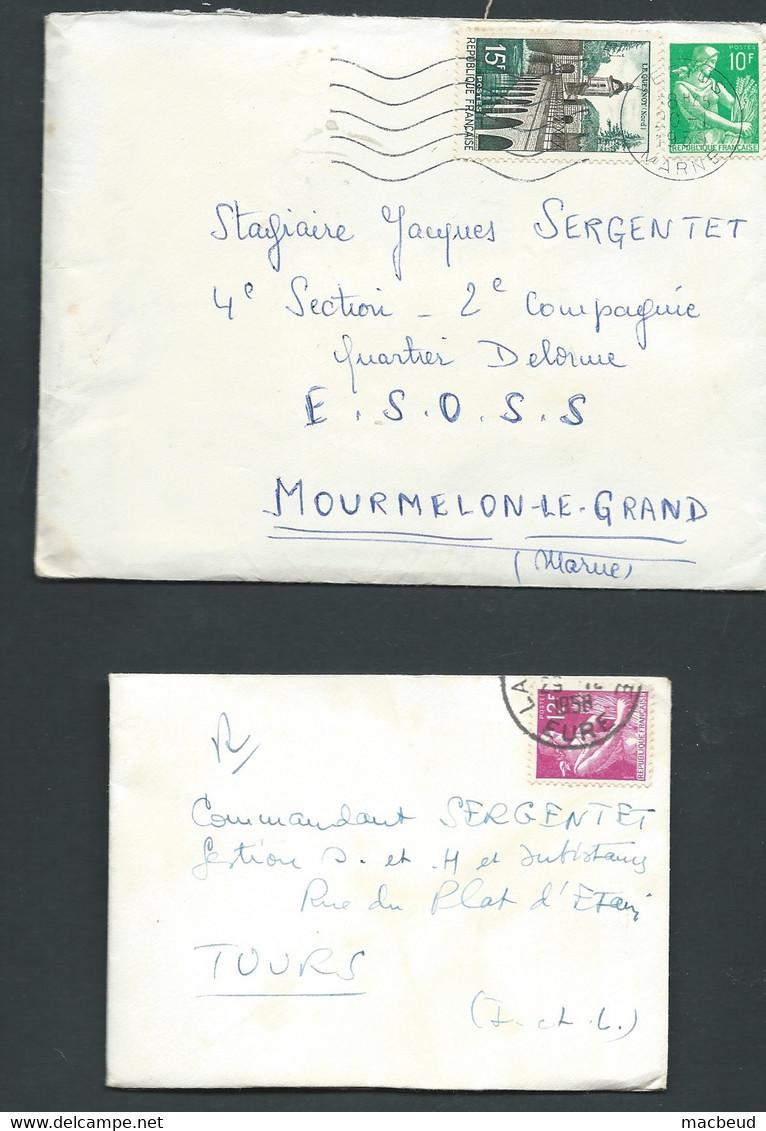 15F
POSTES
REPUBLIQUE FRANÇAISE
LE QUESNOY (Nord)
POSTES
10F
REPUBLIQUE FRANÇAISE
MARNE
Stagiaire Jacques SERGENTET
4e Section - 2e Compagnie
Quartier Delorme
E.S.O.S.S
MOURMELON-LE-GRAND
(Marne)
POSTES
12F
REPUBLIQUE FRANÇAISE
LA
1958
EURE
Commandant SERGENTET
Section S. et H et
Rue du Plat d'Etain
TOURS
(I. et L.)
macbeud